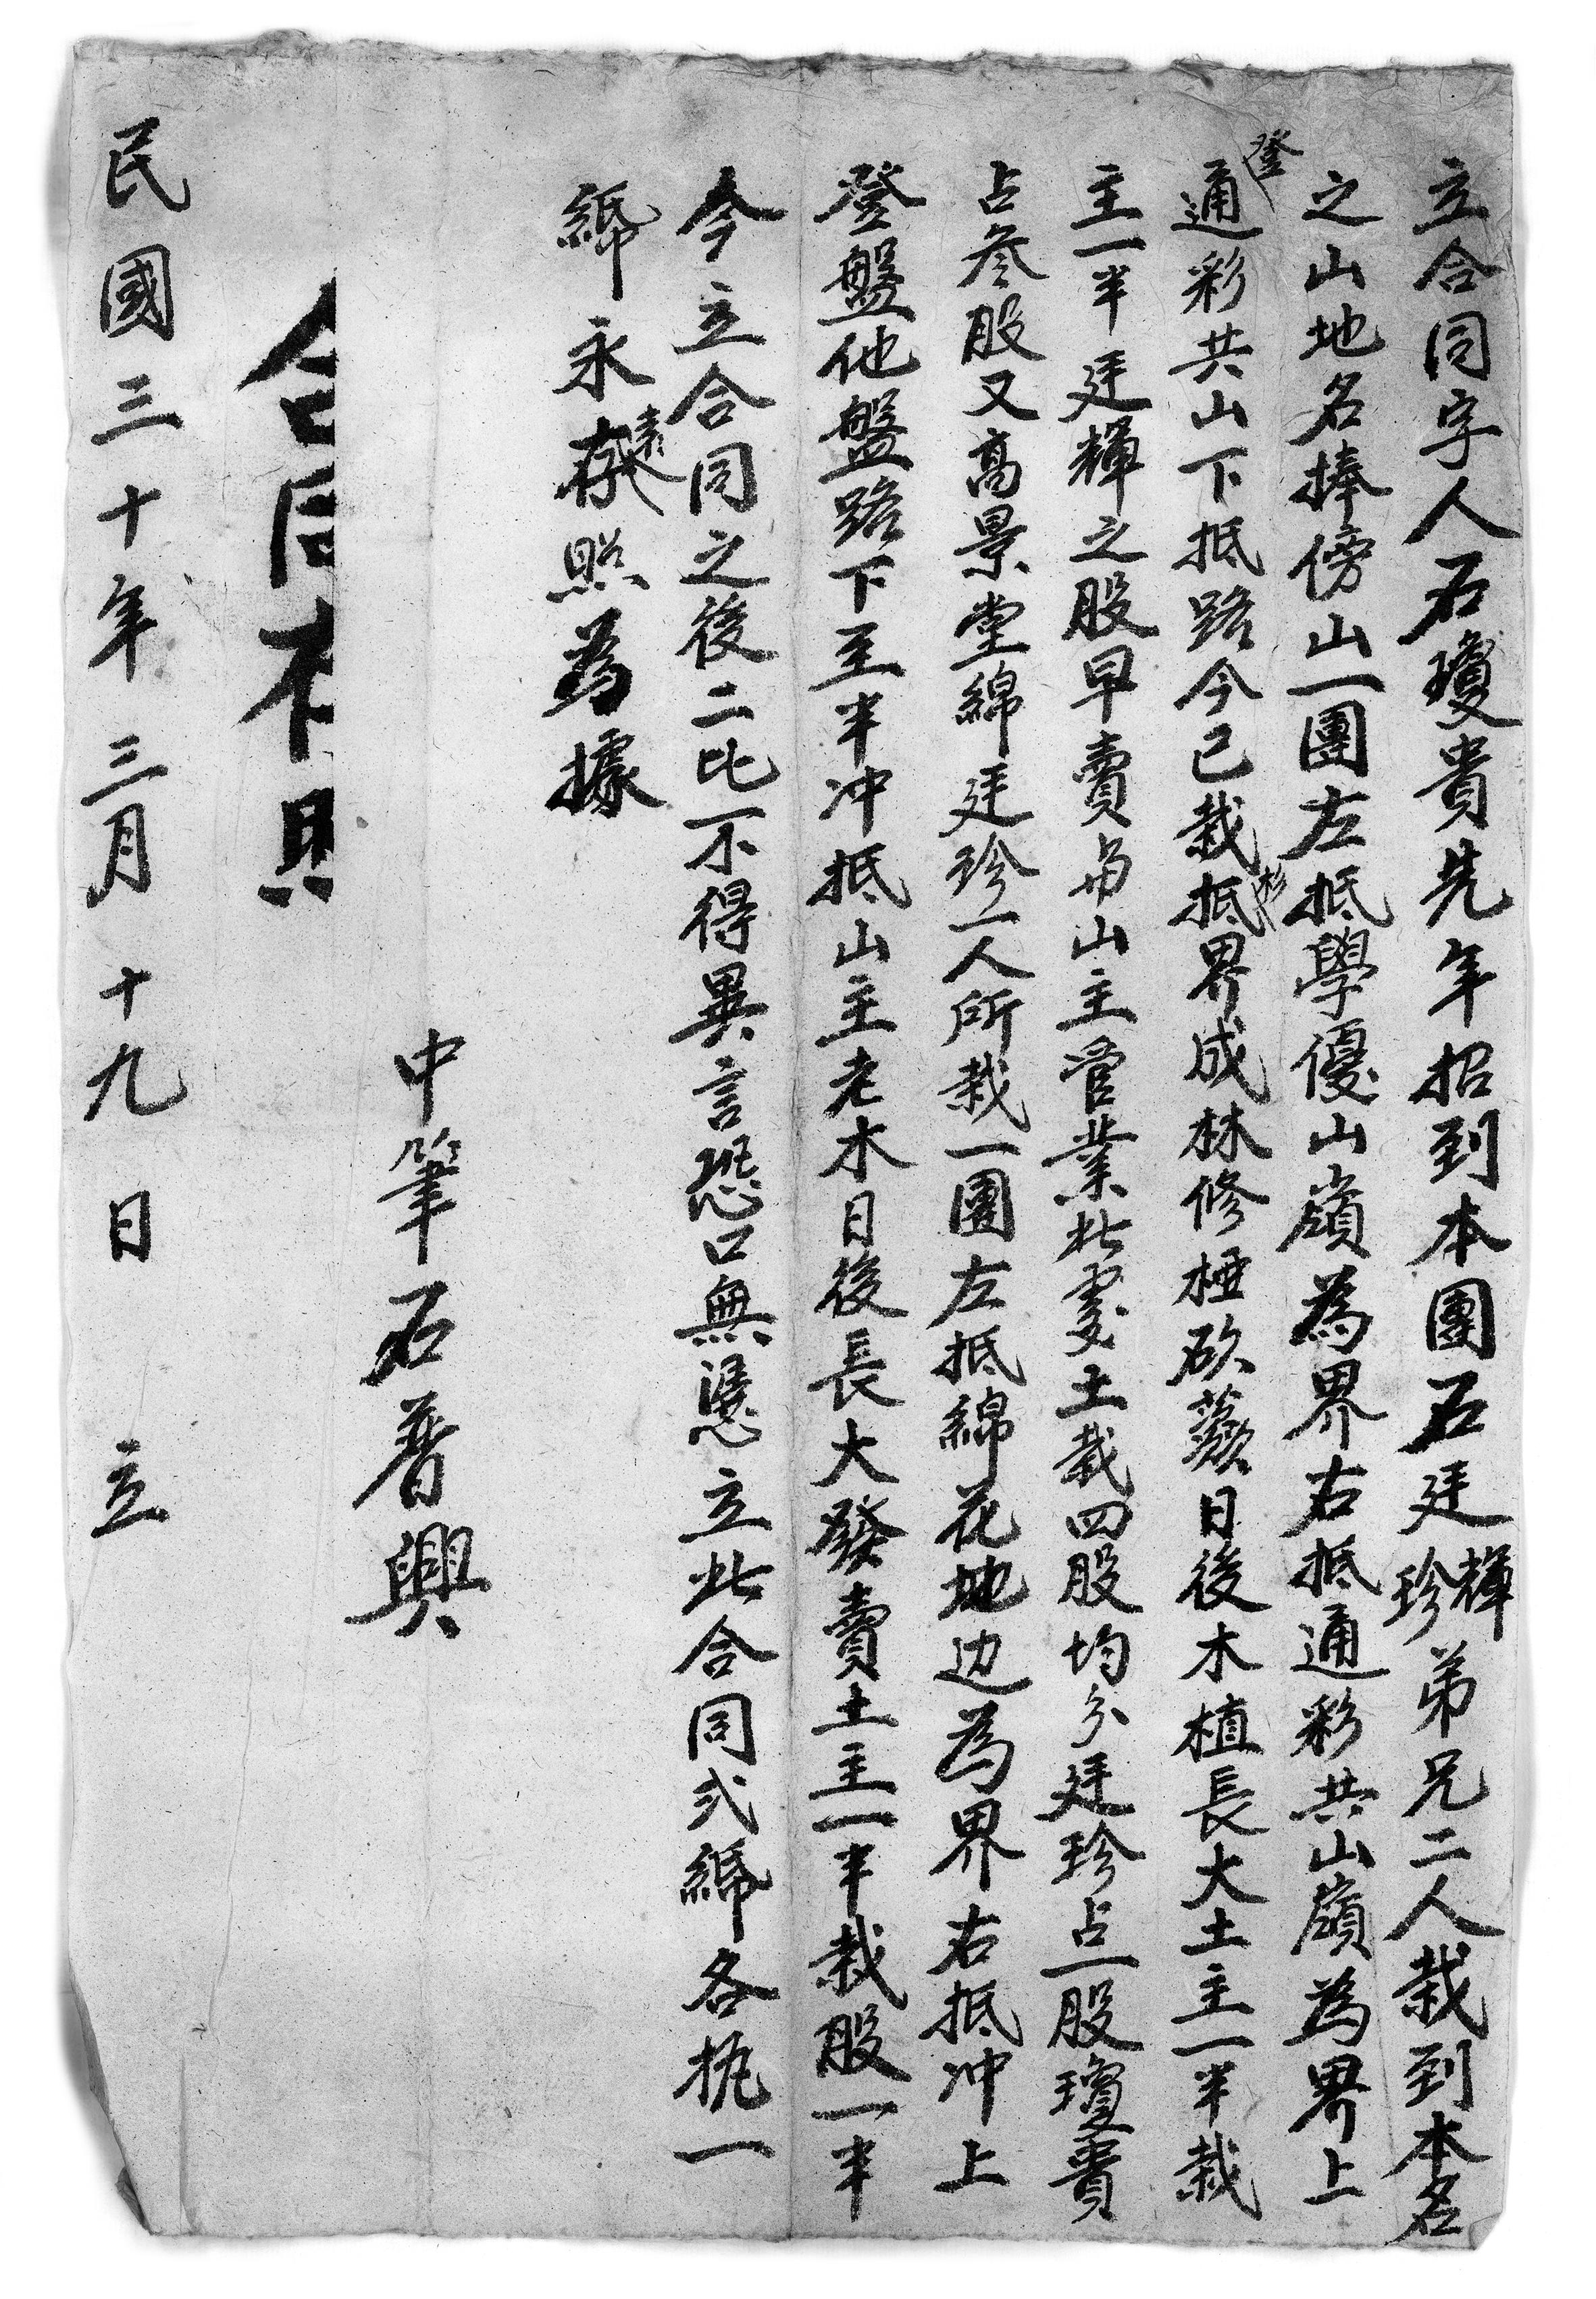 立合同字人石瓊貴先年招到本團石廷輝珍弟兄二人栽到本名
之山地名捧傍山一團左抵學優山嶺為界右抵通彩共山嶺為界上
登通彩共山下抵路今已栽杉抵界成林修極砍薐日後木植長大土主一半栽
主一半廷輝之股早賣與山主管業此處土栽四股均分廷珍占一股瓊貴
占叁股又高景堂綿廷珍一人所栽一團左抵綿花地边為界右抵冲上
登盤他盤路下至半冲抵山主老木日後長大發賣土主一半栽股一半
今立合同之後二比不得異言恐口無憑立此合同弍紙各执一
紙永遠存照為據
中筆石普興
合同存照
民國三十年三月十九日立